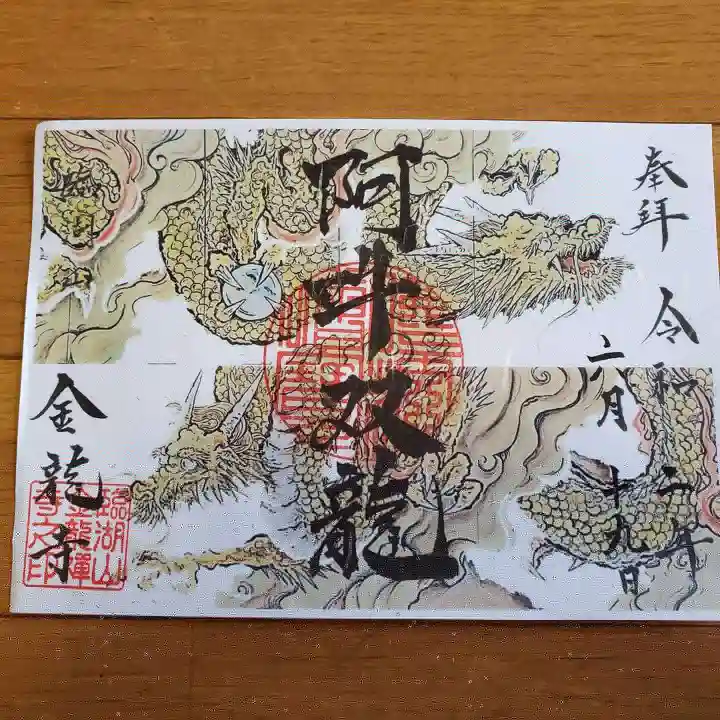 奉拝
令和二年
六月十九日
阿吽双龍
金龍寺
臨湖山
金龍禅
寺之印